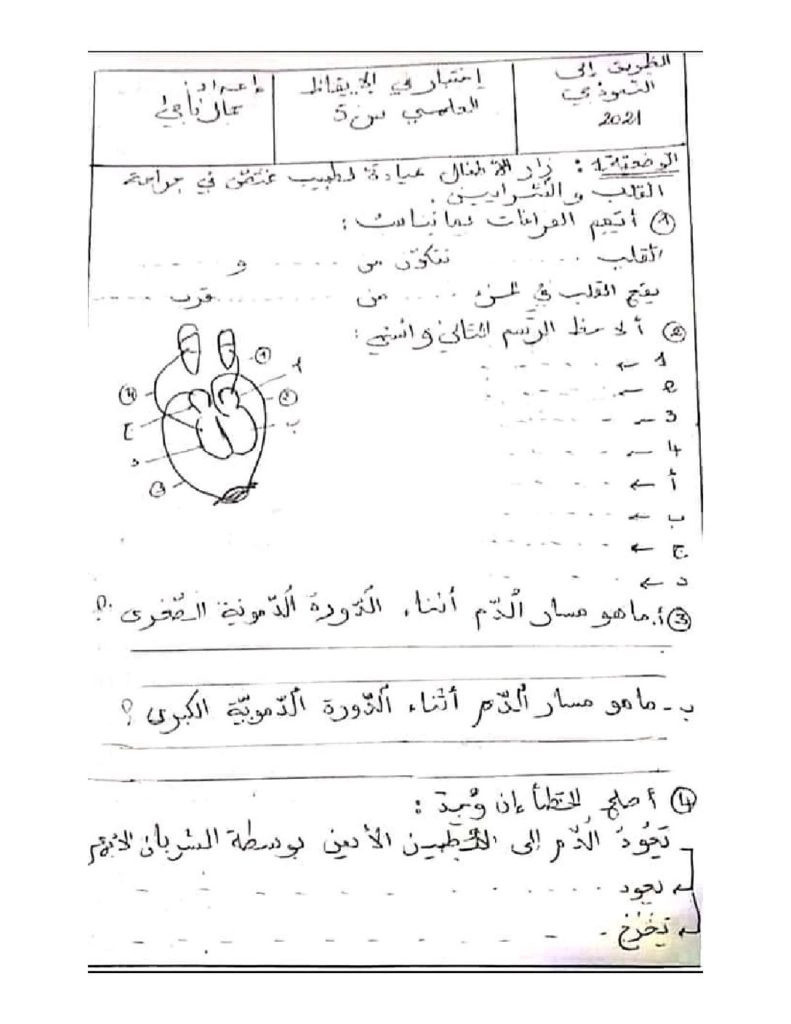 الطريق إلى
النموذجي
2021
إختبار في الإيقاظ
العلمي س 5
إعداد:
الوضعية 1: زار الأطفال عيادة لطبيب مختص في جراحة
القلب والشرايين.
① أتمم الفراغات بما يناسب:
القلب ...... تتكوّن من ...... و ......
يقع القلب في الجزء ...... من ...... قرب ......
② ألاحظ الرّسم التالي و اسمّي:
1 ← ......
2 ← ......
3 ← ......
4 ← ......
أ ← ......
ب ← ......
ج ← ......
د ← ......
① أ ② ب ③ د ج ④
③ أ. ماهو مسار الدّم أثناء الدّورة الدّموية الصّغرى؟
ب - ماهو مسار الدّم أثناء الدّورة الدّمويّة الكبرى؟
④ أصلح الخطأ إن وُجد:
يَعُودُ الدّم إلى الأذين الأيمن بوسطة الشريان الأبهر
يعود ......
يَخْرُجُ ......